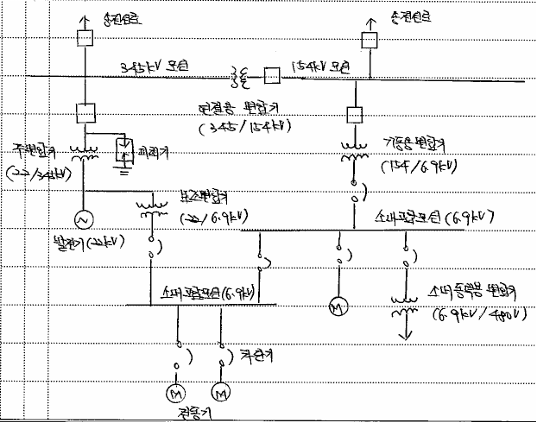 송전선로
송전선로
345kV 모선
154kV 모선
연결용 변압기
(345/154kV)
주변압기
(22/345kV)
피뢰기
기동용 변압기
(154/6.9kV)
보조변압기
(22/6.9kV)
발전기(22kV)
~
소내고압모선(6.9kV)
소내고압모선(6.9kV)
M
소내동력용 변압기
(6.9kV/480V)
차단기
M
M
전동기